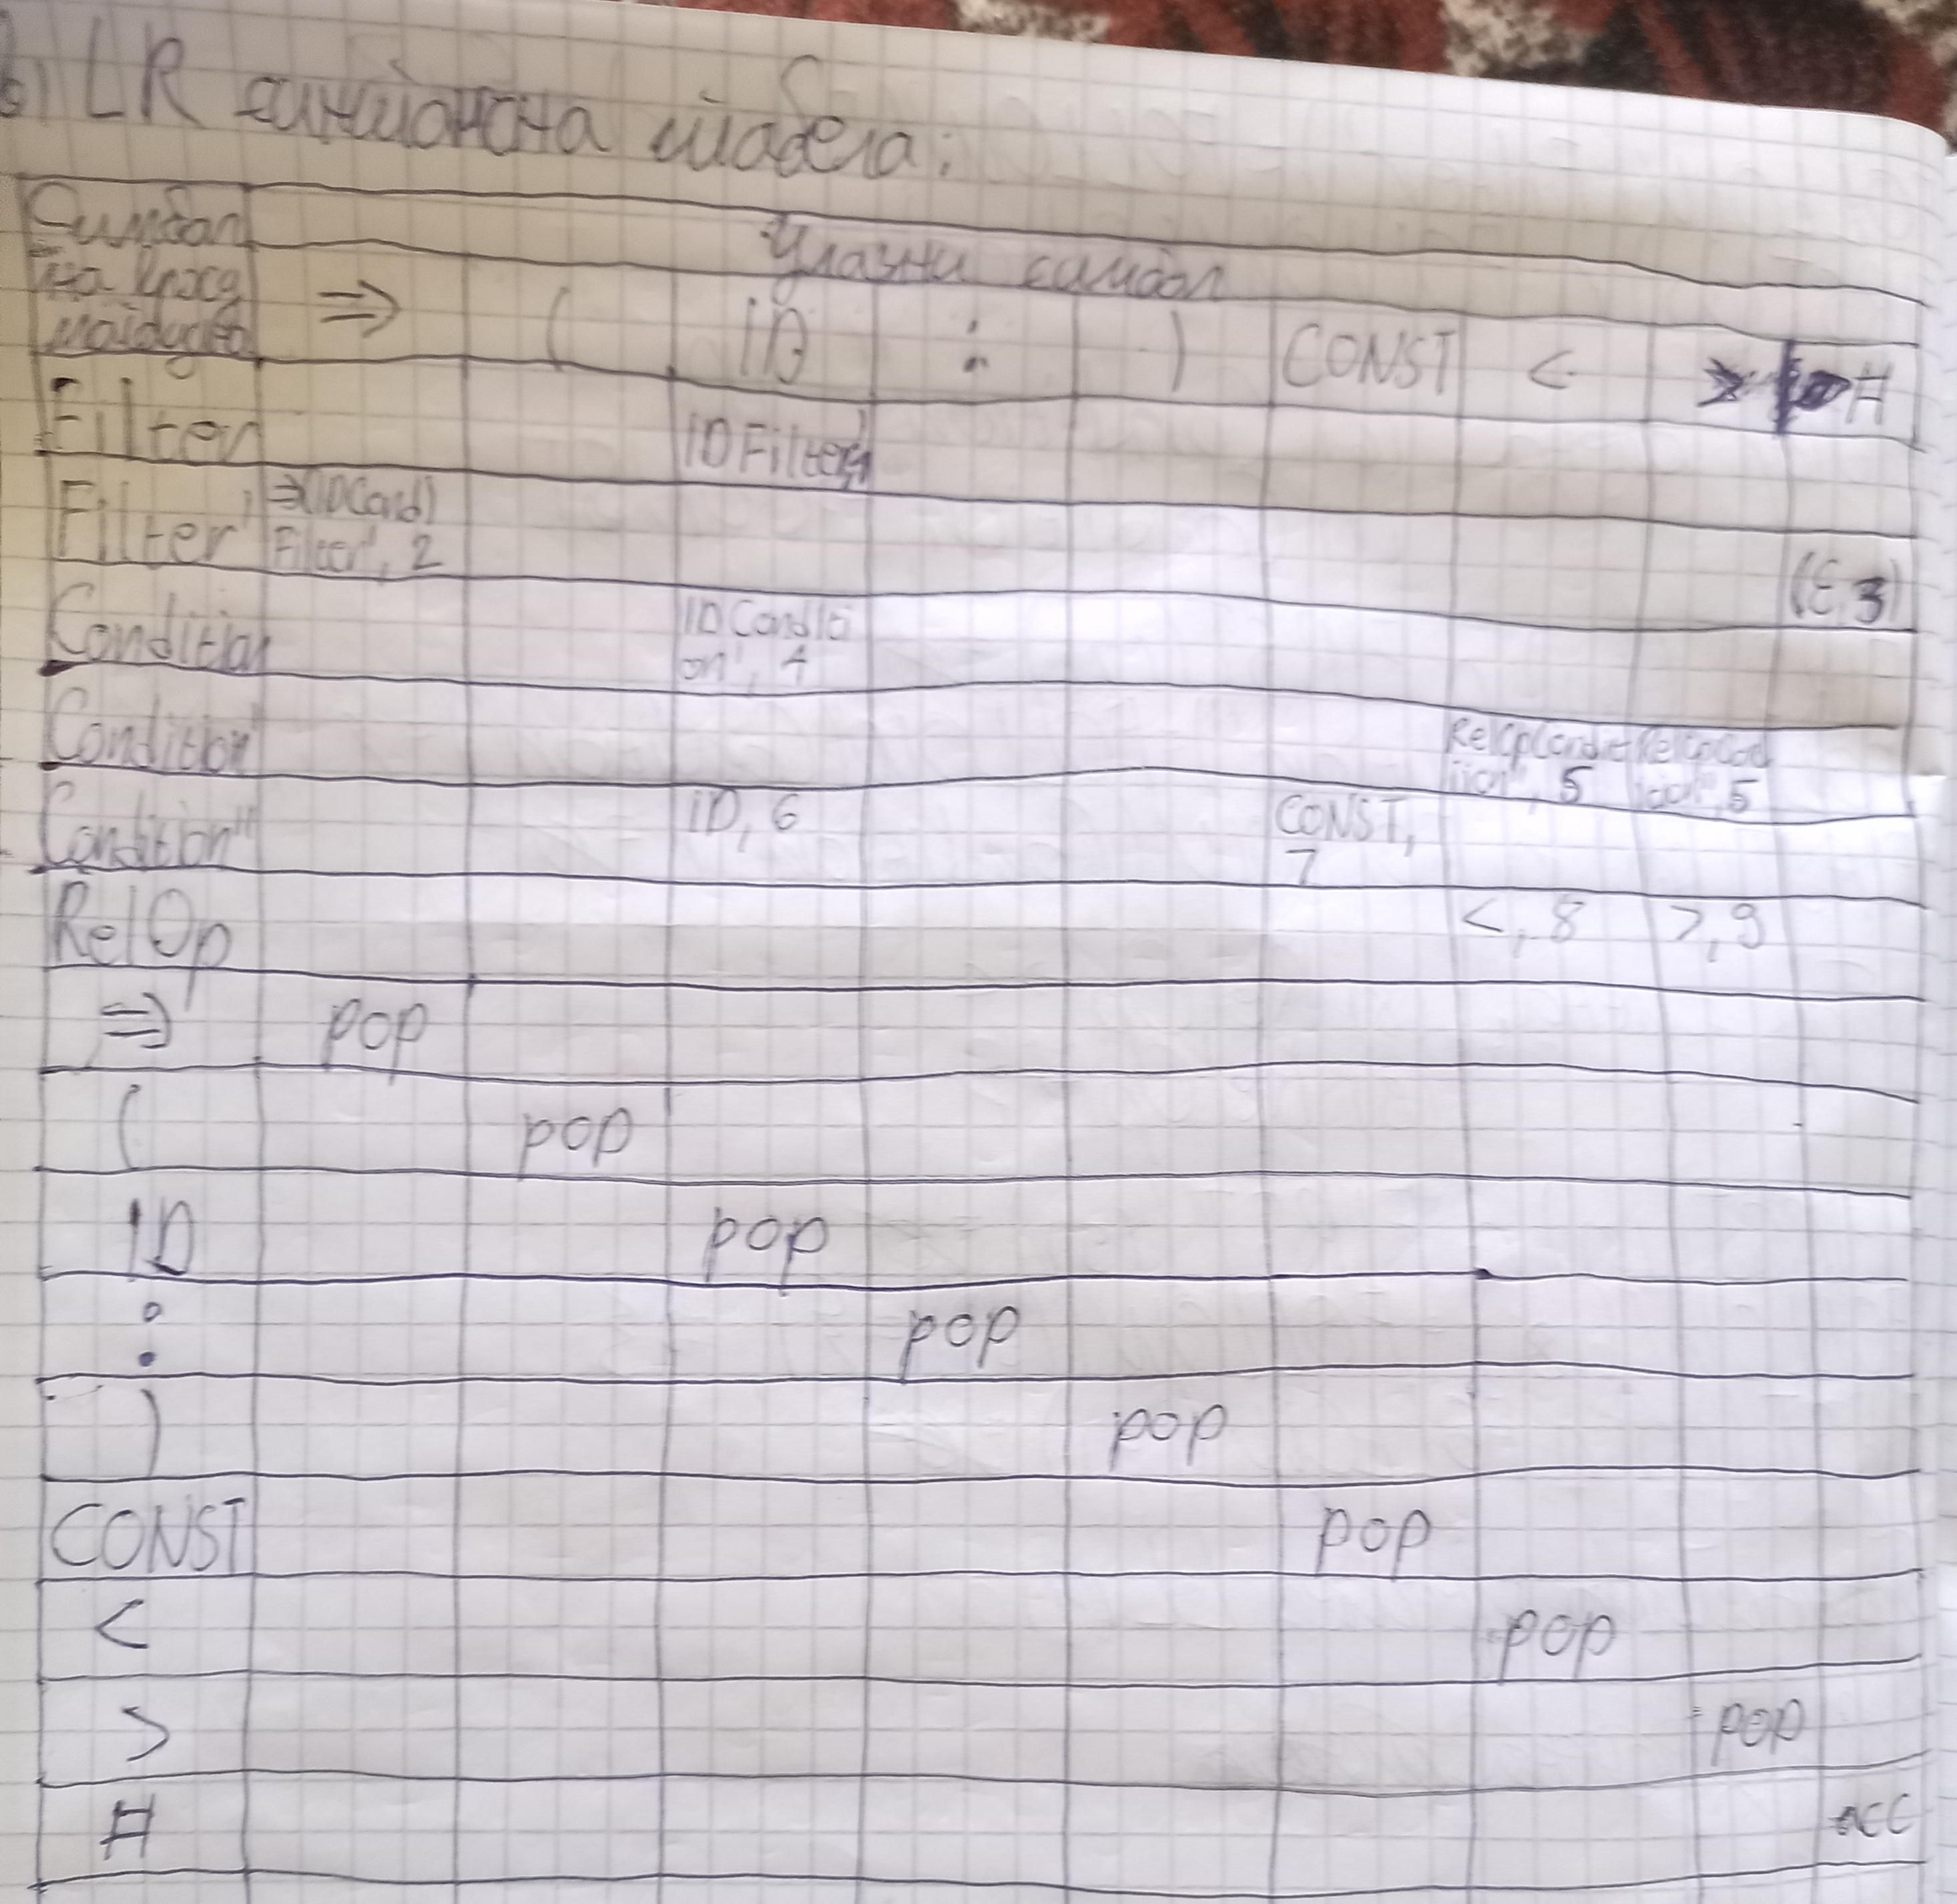 б) LR синтаксна табела:
Симбол на врху магацина
Улазни симбол
⇒ ( ID : ) CONST < > #
Filter IDFilter'
Filter' ⇒(IDCond)
Filter', 2 (ε, 3)
Condition IDCondition', 4
Condition' RelOpCondition'', 5 RelOpCondition'', 5
Condition'' ID, 6 CONST, 7
RelOp <, 8 >, 9
⇒ pop
( pop
ID pop
: pop
) pop
CONST pop
< pop
> pop
# acc